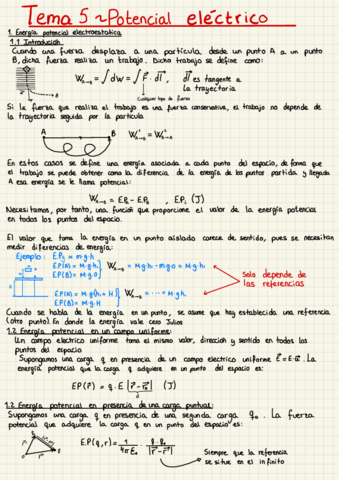 Tema 5 ~ Potencial eléctrico
1. Energía potencial electrostática
1.1 Introducción
Cuando una fuerza desplaza a una partícula desde un punto A a un punto
B, dicha fuerza realiza un trabajo. Dicho trabajo se define como:
W A→B = ∫ dw = ∫ F · dl , dl es tangente a
la trayectoria
Cualquier tipo de fuerza
Si la fuerza que realiza el trabajo es una fuerza conservativa, el trabajo no depende de
la trayectoria seguida por la partícula
A B W¹A→B = W²A→B
En estos casos se define una energía asociada a cada punto del espacio, de forma que
el trabajo se puede obtener como la diferencia de la energía de los puntos partida y llegada
A esa energía se le llama potencial:
W A→B = EPA - EPB , EP1 (J)
Necesitamos, por tanto, una función que proporcione el valor de la energía potencial
en todos los puntos del espacio.
El valor que toma la energía en un punto aislado carece de sentido, pues se necesitan
medir diferencias de energía:
Ejemplo: EPg = m·g·h
EP(A) = M·g·h
EP(B) = M·g·0
W A→B = M·g·h - m·g·0 = M·g·h
Solo depende de
las referencias
EP(A) = M·g(h+H)
EP(B) = M·g·H
W A→B = ··· = M·g·h
Cuando se habla de la energía en un punto, se asume que hay establecida una referencia
(otro punto). En donde la energía vale cero Julios
1.2 Energía potencial en un campo uniforme:
Un campo electrico uniforme toma el mismo valor, dirección y sentido en todos los
puntos del espacio
Supongamos una carga q en presencia de un campo electrico uniforme E = E·û. La
energía potencial que la carga q adquiere en un punto del espacio es:
EP(r) = q·E |r - r0| (J)
d
1.2 Energía potencial en presencia de una carga puntual:
Supongamos una carga q en presencia de una segunda carga q0. La fuerza
potencial que adquiere la carga q en un punto del espacio es:
E.P(q,r) = 1/4πε0 · q·q0/|r - r'|
Siempre que la referencia
se situe en el infinito